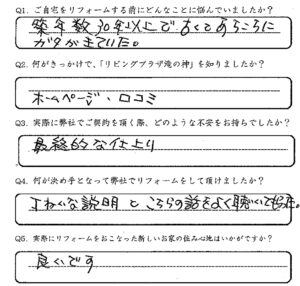 Q1. ご自宅をリフォームする前にどんなことに悩んでいましたか？
築年数30年以上で古くてあちこちに
ガタがきていた。
Q2. 何がきっかけで、「リビングプラザ滝の神」を知りましたか？
ホームページ・口コミ
Q3. 実際に弊社でご契約を頂く際、どのような不安をお持ちでしたか？
最終的な仕上り
Q4. 何が決め手となって弊社でリフォームをして頂けましたか？
丁ねいな説明とこちらの話をよく聴いて
Q5. 実際にリフォームをおこなった新しいお家の住み心地はいかがですか？
良いです